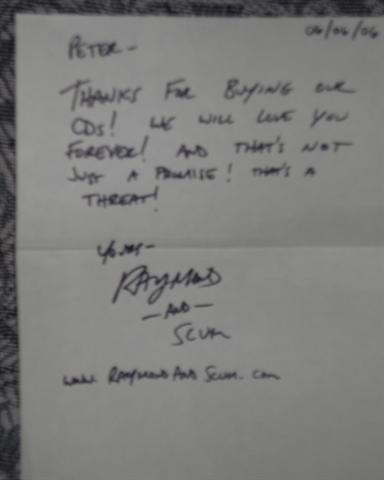 06/06/06
PETER-
THANKS FOR BUYING OUR
CDs! WE WILL LOVE YOU
FOREVER! AND THAT'S NOT
JUST A PROMISE! THAT'S A
THREAT!
YOURS-
RAYMOND
-AND-
SCUM
www.RAYMONDANDSCUM.com